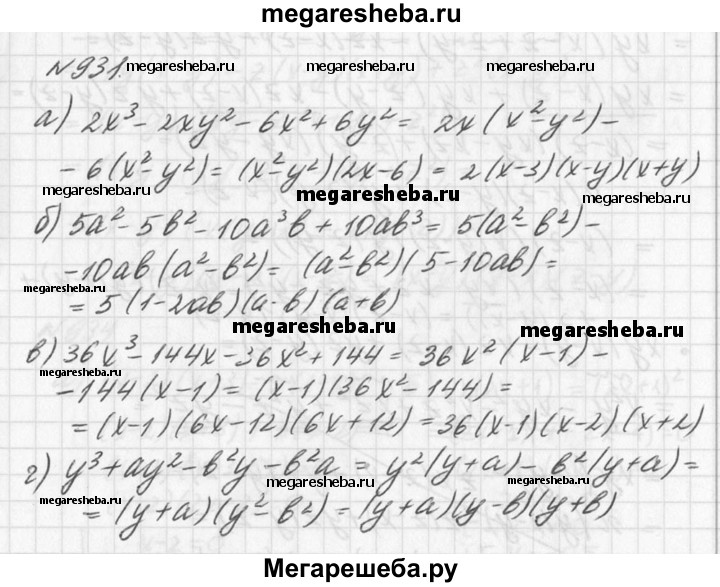 megaresheba.ru
№931. megaresheba.ru megaresheba.ru megaresheba.ru
а) 2x³ - 2xy² - 6x² + 6y² = 2x(x² - y²) -
- 6(x² - y²) = (x² - y²)(2x - 6) = 2(x - 3)(x - y)(x + y)
megaresheba.ru megaresheba.ru megaresheba.ru
б) 5a² - 5b² - 10a³b + 10ab³ = 5(a² - b²) -
- 10ab(a² - b²) = (a² - b²)(5 - 10ab) =
= 5(1 - 2ab)(a - b)(a + b)
megaresheba.ru megaresheba.ru megaresheba.ru
в) 36x³ - 144x - 36x² + 144 = 36x²(x - 1) -
megaresheba.ru megaresheba.ru
- 144(x - 1) = (x - 1)(36x² - 144) =
= (x - 1)(6x - 12)(6x + 12) = 36(x - 1)(x - 2)(x + 2)
г) y³ + ay² - b²y - b²a = y²(y + a) - b²(y + a) =
megaresheba.ru megaresheba.ru megaresheba.ru
= (y + a)(y² - b²) = (y + a)(y - b)(y + b)
Мегарешеба.ру